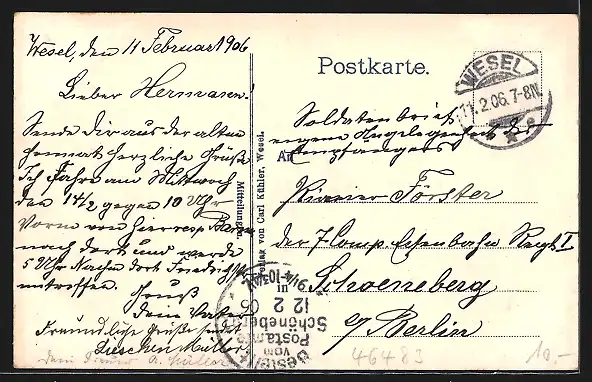 Wesel, den 11 Februar 1906
Lieber Hermann!
Sende Dir aus der alten
Heimat herzliche Grüße
Ich fahre am Mittwoch
den 14/2 gegen 10 Uhr
Vorm von hier resp.
nach dort und werde
5 Uhr Nachm dort
eintreffen. Gruß
Dein Vater
Freundliche Grüße sendet
Lieschen Müller
Mitteilungen
Verlag von Carl Kühler, Wesel.
Postkarte.
WESEL
11.2.06.7-8N.
Soldatenbrief
eigene Angelegenheit des
Empfängers
An
Pionier Förster
der 7 Comp Eisenbahn Regt I
in
Schoeneberg
b/Berlin
Bestellt
vom
Postamte
Schöneberg
12 2 06
46483
10.-